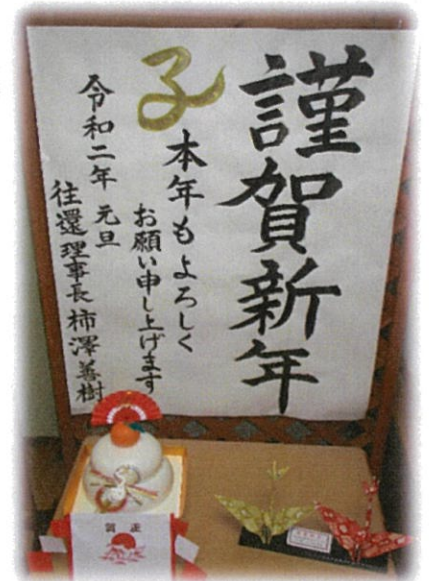 謹賀新年
子
本年もよろしく
お願い申し上げます
令和二年 元旦
往還 理事長 柿澤善樹
賀正